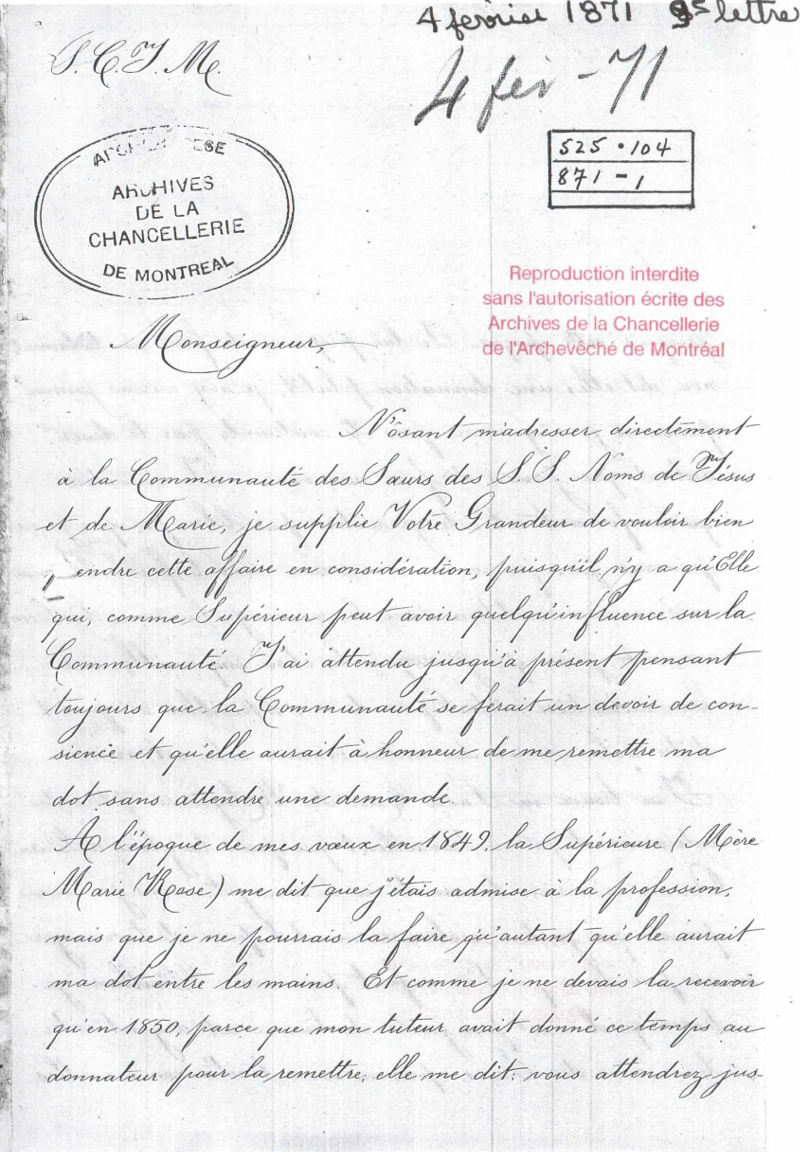 4 février 1871 9e lettre
4 fév - 71
J.C.J.M.
525.104
871-1
ARCHIVES
DE LA
CHANCELLERIE
DE MONTREAL
Reproduction interdite
sans l'autorisation écrite des
Archives de la Chancellerie
de l'Archevêché de Montréal
Monseigneur,
N'ôsant m'adresser directement
à la Communauté des Sœurs des S.S. Noms de Jésus
et de Marie, je supplie Votre Grandeur de vouloir bien
endre cette affaire en considération, puisqu'il n'y a qu'Elle
qui, comme Supérieur peut avoir quelqu'influence sur la
Communauté. J'ai attendu jusqu'à présent pensant
toujours que la Communauté se ferait un devoir de con-
sience et qu'elle aurait à honneur de me remettre ma
dot sans attendre une demande.
A l'époque de mes vœux en 1849, la Supérieure (Mère
Marie Rose) me dit que j'étais admise à la profession,
mais que je ne pourrais la faire qu'autant qu'elle aurait
ma dot entre les mains. Et comme je ne devais la recevoir
qu'en 1850, parce que mon tuteur avait donné ce temps au
donnateur pour la remettre, elle me dit: vous attendrez jus-